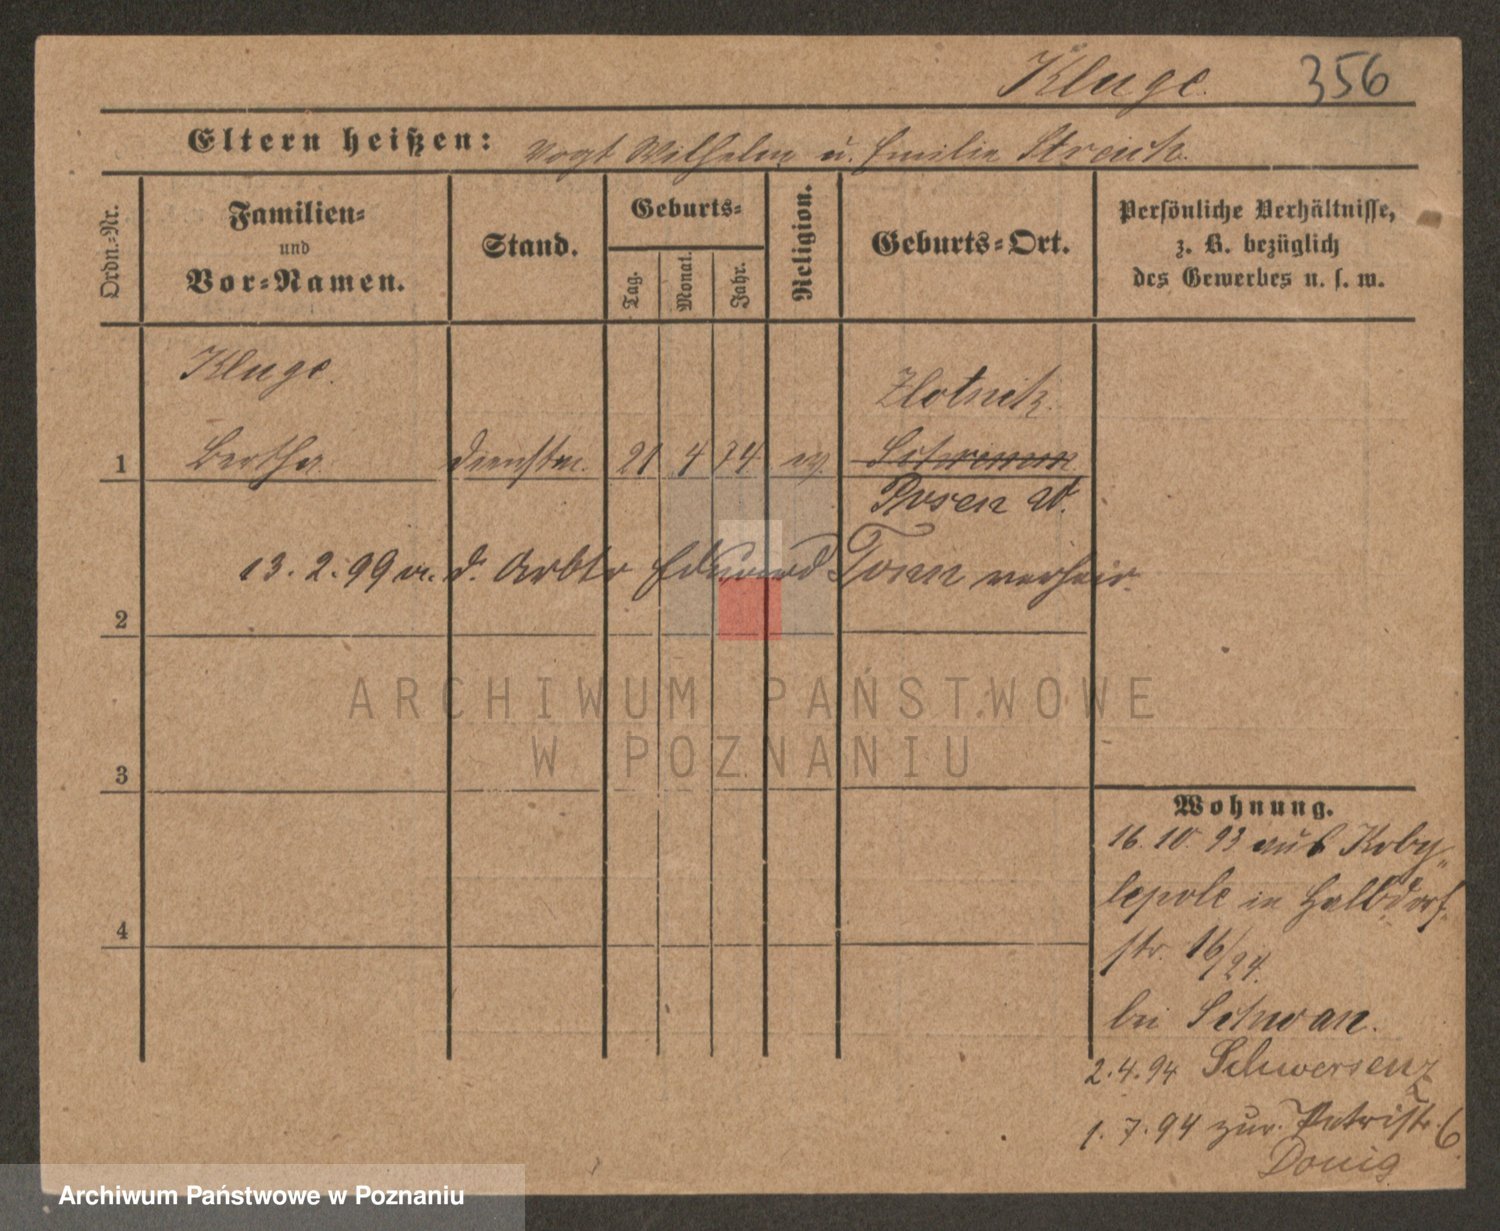 Kluge. 356
Eltern heißen: Vogt Wilhelm u. Emilie Streich.
Ordn.-Nr.
Familien-
und
Vor-Namen.
Stand.
Geburts-
Tag.
Monat.
Jahr.
Religion.
Geburts-Ort.
Persönliche Verhältnisse,
z. B. bezüglich
des Gewerbes u. s. w.
Kluge.
Zlotnik.
1 Bertha dienstm. 21 4 74 ev Schrimm
Posen W.
13. 2. 99 m. d. Arbtr Eduard Tonn verheir.
2
3
4
Wohnung.
16. 10. 93 aus Koby-
lepole in Halbdorf-
str. 16/24.
bei Schwan.
2. 4. 94 Schwersenz
1. 7. 94 zur. Petristr. 6
Donig
ARCHIWUM PAŃSTWOWE
W POZNANIU
Archiwum Państwowe w Poznaniu